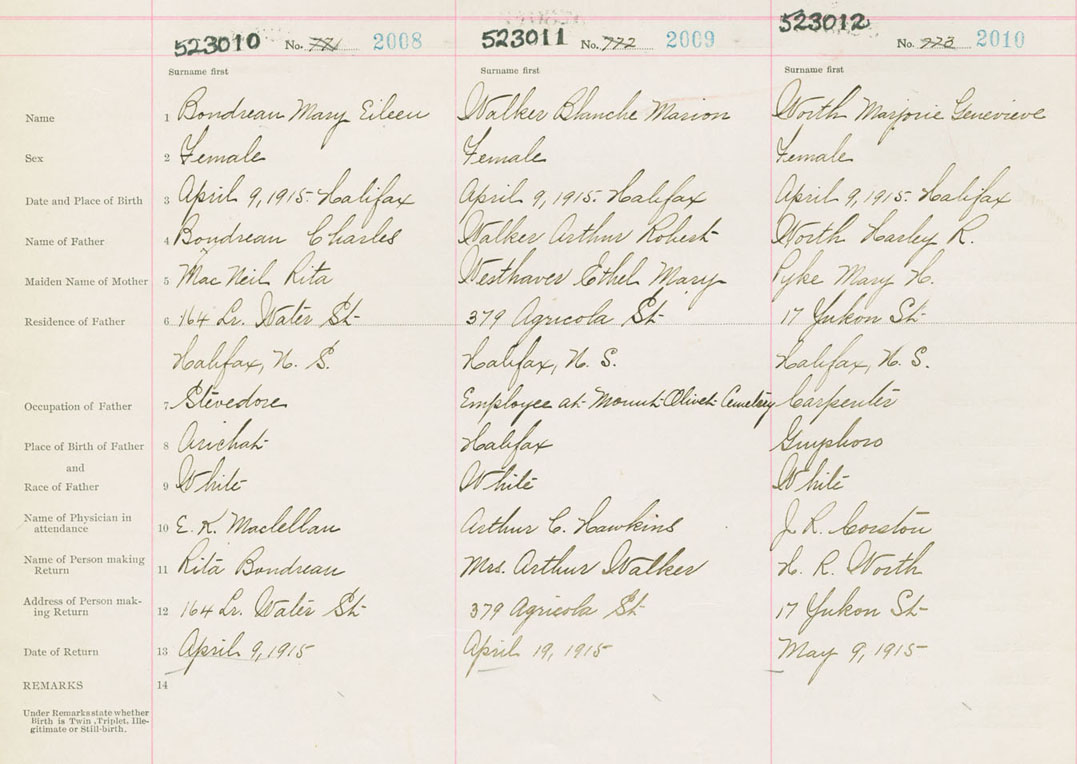 523010 No. 771 2008 523011 No. 772 2009 523012 No. 773 2010
Surname first Surname first Surname first
Name 1 Boudreau Mary Eileen Walker Blanche Marion Worth Marjorie Genevieve
Sex 2 Female Female Female
Date and Place of Birth 3 April 9, 1915. Halifax April 9, 1915. Halifax April 9, 1915. Halifax
Name of Father 4 Boudreau Charles Walker Arthur Robert Worth Harley R.
Maiden Name of Mother 5 Mac Neil Rita Westhaver Ethel Mary Pyke Mary H.
Residence of Father 6 164 Lr. Water St. 379 Agricola St. 17 Yukon St.
Halifax, N. S. Halifax, N. S. Halifax, N. S.
Occupation of Father 7 Stevedore Employee at Mount Olivet Cemetery Carpenter
Place of Birth of Father 8 Arichat Halifax Guysboro
and
Race of Father 9 White White White
Name of Physician in
attendance 10 E. K. Maclellan Arthur C. Hawkins J. R. Corston
Name of Person making
Return 11 Rita Boudreau Mrs. Arthur Walker H. R. Worth
Address of Person mak-
ing Return 12 164 Lr. Water St. 379 Agricola St. 17 Yukon St.
Date of Return 13 April 9, 1915 April 19, 1915 May 9, 1915
REMARKS 14
Under Remarks state whether
Birth is Twin, Triplet, Ille-
gitimate or Still-birth.